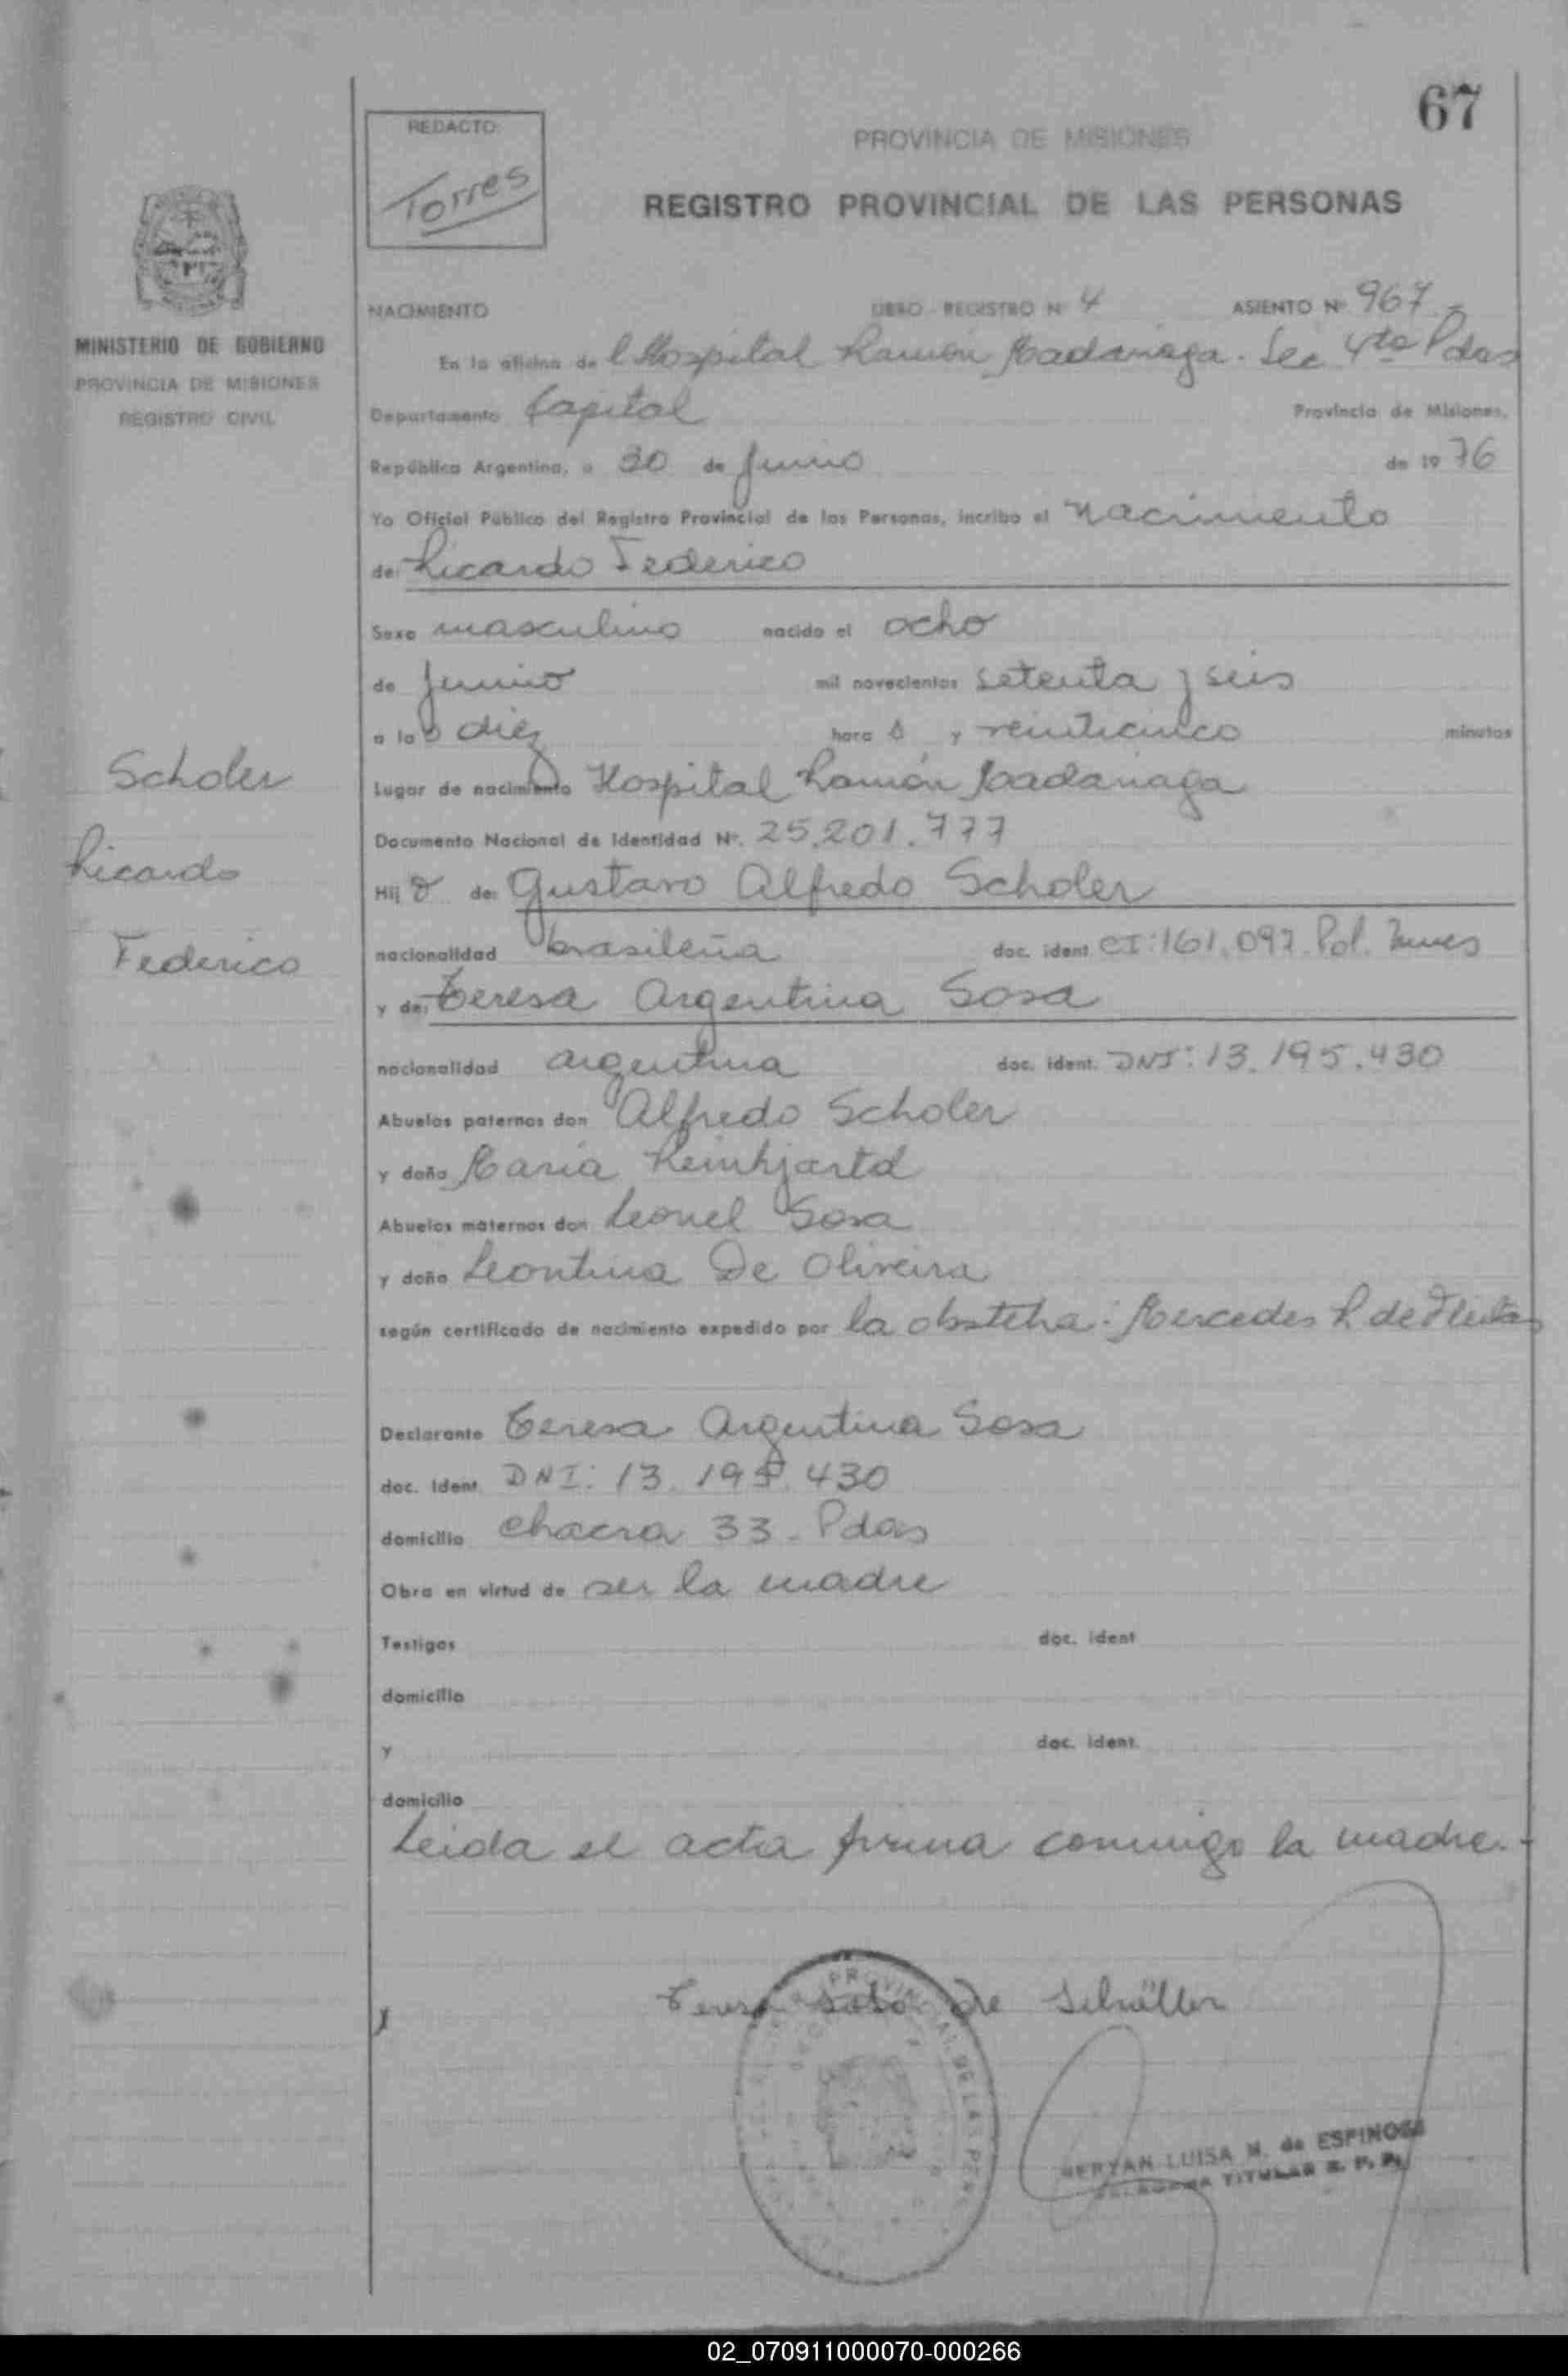 67
REDACTO:
Torres
PROVINCIA DE MISIONES
REGISTRO PROVINCIAL DE LAS PERSONAS
MINISTERIO DE GOBIERNO
PROVINCIA DE MISIONES
REGISTRO CIVIL
NACIMIENTO LIBRO - REGISTRO Nº 4 ASIENTO Nº 967
En la oficina de l Hospital Ramón Madariaga. Sec 4ta Pdas
Departamento Capital Provincia de Misiones,
República Argentina, a 30 de Junio de 19 76
Yo Oficial Público del Registro Provincial de las Personas, incribo el nacimiento
de: Ricardo Federico
Sexo masculino nacido el ocho
de Junio mil novecientos setenta y seis
a las diez hora s y veinticinco minutos
Scholer
Lugar de nacimiento Hospital Ramón Madariaga
Documento Nacional de Identidad Nº. 25.201.777
Ricardo
Hij o de: Gustavo Alfredo Scholer
Federico
nacionalidad brasileña doc. ident. CI: 161.097. Pol. Mnes
y de: Teresa Argentina Sosa
nacionalidad argentina doc. ident. DNI: 13.195.430
Abuelos paternos don Alfredo Scholer
y doña Maria Reinhjartd
Abuelos maternos don Leonel Sosa
y doña Leontina De Oliveira
según certificado de nacimiento expedido por la obstetra: Mercedes R de Fleitas
Declarante Teresa Argentina Sosa
doc. Ident. DNI: 13.195.430
domicilio chacra 33 - Pdas
Obra en virtud de ser la madre
Testigos doc. ident
domicilio
y doc. ident.
domicilio
Leida el acta firma conmigo la madre.-
Teresa Sosa de Schuller
LUISA N. de ESPINOSA
TITULAR R. P. P.
02_070911000070-000266